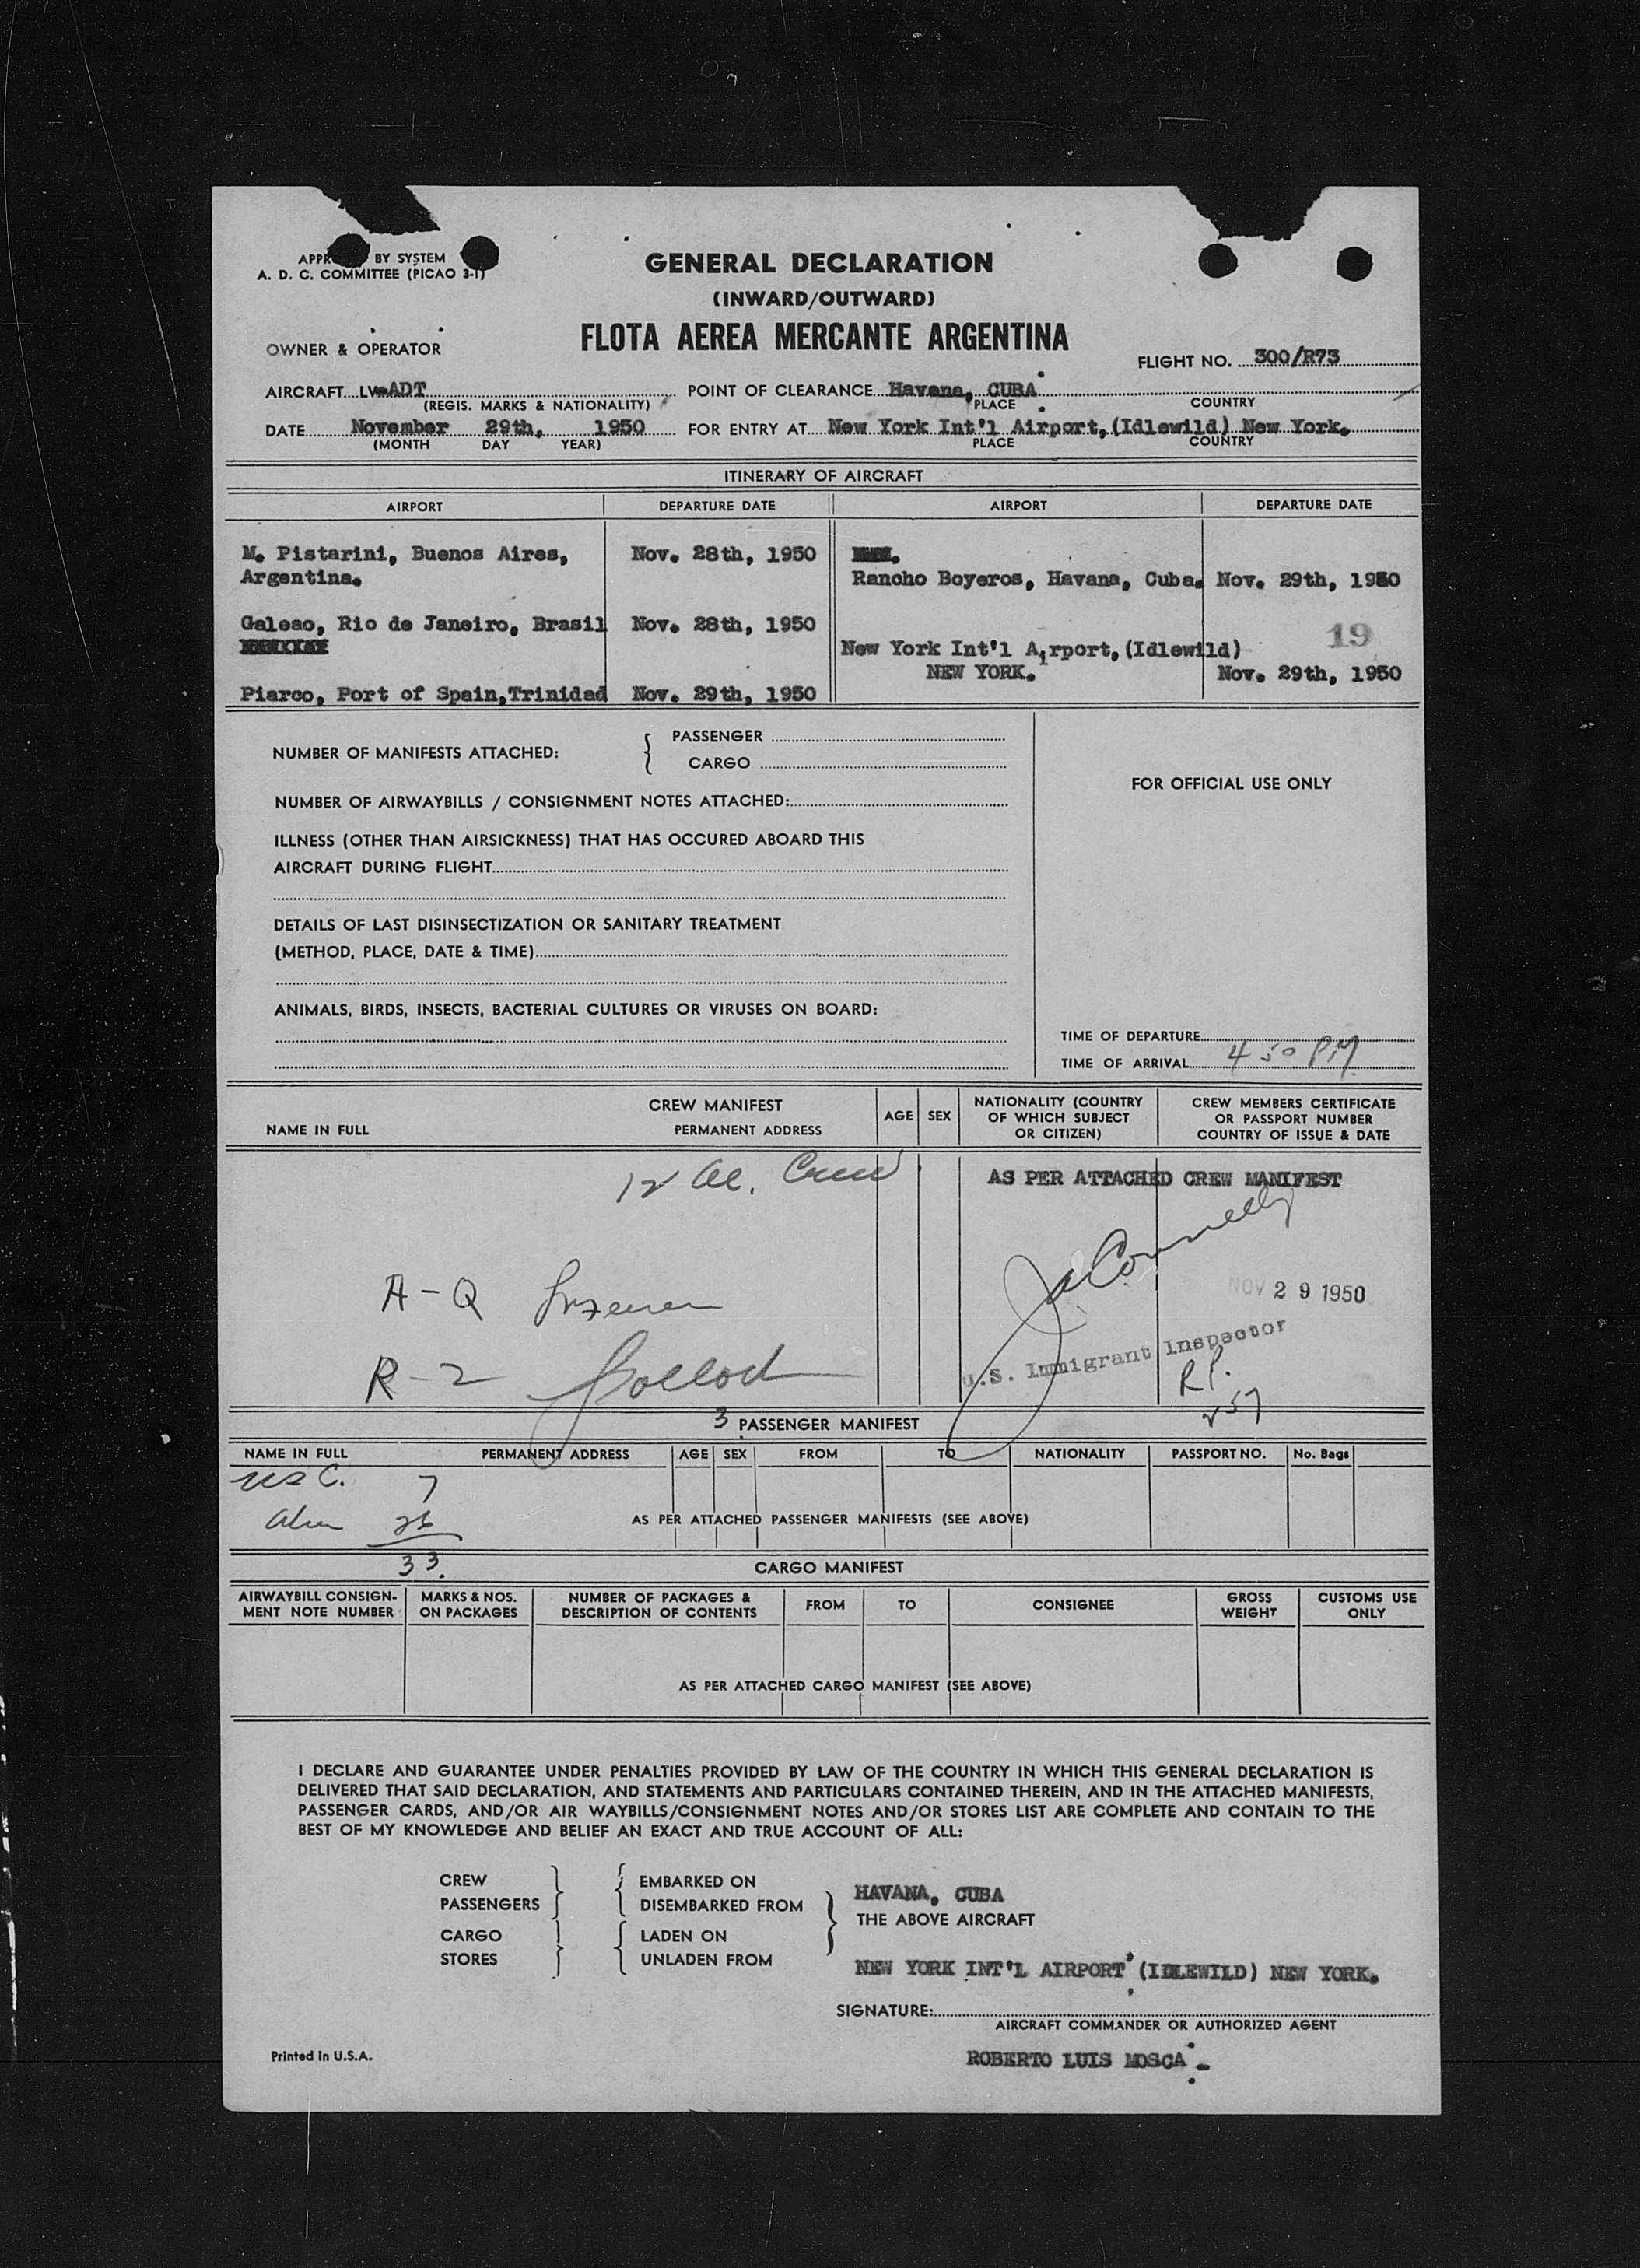 APPR BY SYSTEM
A. D. C. COMMITTEE (PICAO 3-1)
GENERAL DECLARATION
(INWARD/OUTWARD)
OWNER & OPERATOR
FLOTA AEREA MERCANTE ARGENTINA
FLIGHT NO. 300/R73
AIRCRAFT LV-ADT POINT OF CLEARANCE Havana, CUBA
(REGIS. MARKS & NATIONALITY) PLACE COUNTRY
DATE November 29th, 1950 FOR ENTRY AT New York Int'l Airport,(Idlewild) New York.
(MONTH DAY YEAR) PLACE COUNTRY
ITINERARY OF AIRCRAFT
AIRPORT DEPARTURE DATE AIRPORT DEPARTURE DATE
M. Pistarini, Buenos Aires, Nov. 28th, 1950
Argentina. Rancho Boyeros, Havana, Cuba. Nov. 29th, 1950
Galeao, Rio de Janeiro, Brasil Nov. 28th, 1950
19
New York Int'l Airport,(Idlewild)
NEW YORK. Nov. 29th, 1950
Piarco, Port of Spain,Trinidad Nov. 29th, 1950
NUMBER OF MANIFESTS ATTACHED: { PASSENGER
CARGO
FOR OFFICIAL USE ONLY
NUMBER OF AIRWAYBILLS / CONSIGNMENT NOTES ATTACHED:
ILLNESS (OTHER THAN AIRSICKNESS) THAT HAS OCCURED ABOARD THIS
AIRCRAFT DURING FLIGHT
DETAILS OF LAST DISINSECTIZATION OR SANITARY TREATMENT
(METHOD, PLACE, DATE & TIME)
ANIMALS, BIRDS, INSECTS, BACTERIAL CULTURES OR VIRUSES ON BOARD:
TIME OF DEPARTURE
TIME OF ARRIVAL 4 50 PM
CREW MANIFEST
NAME IN FULL PERMANENT ADDRESS AGE SEX NATIONALITY (COUNTRY OF WHICH SUBJECT OR CITIZEN) CREW MEMBERS CERTIFICATE OR PASSPORT NUMBER COUNTRY OF ISSUE & DATE
12 al. Crew
AS PER ATTACHED CREW MANIFEST
Connelly
A-Q
NOV 29 1950
U.S. Immigrant Inspector
R-2
R.P.
257
3 PASSENGER MANIFEST
NAME IN FULL PERMANENT ADDRESS AGE SEX FROM TO NATIONALITY PASSPORT NO. No. Bags
US C. 7
Alien 26
AS PER ATTACHED PASSENGER MANIFESTS (SEE ABOVE)
33.
CARGO MANIFEST
AIRWAYBILL CONSIGN-MENT NOTE NUMBER MARKS & NOS. ON PACKAGES NUMBER OF PACKAGES & DESCRIPTION OF CONTENTS FROM TO CONSIGNEE GROSS WEIGHT CUSTOMS USE ONLY
AS PER ATTACHED CARGO MANIFEST (SEE ABOVE)
I DECLARE AND GUARANTEE UNDER PENALTIES PROVIDED BY LAW OF THE COUNTRY IN WHICH THIS GENERAL DECLARATION IS
DELIVERED THAT SAID DECLARATION, AND STATEMENTS AND PARTICULARS CONTAINED THEREIN, AND IN THE ATTACHED MANIFESTS,
PASSENGER CARDS, AND/OR AIR WAYBILLS/CONSIGNMENT NOTES AND/OR STORES LIST ARE COMPLETE AND CONTAIN TO THE
BEST OF MY KNOWLEDGE AND BELIEF AN EXACT AND TRUE ACCOUNT OF ALL:
CREW EMBARKED ON
HAVANA, CUBA
PASSENGERS DISEMBARKED FROM
THE ABOVE AIRCRAFT
CARGO LADEN ON
STORES UNLADEN FROM
NEW YORK INT'L AIRPORT (IDLEWILD) NEW YORK.
SIGNATURE:
AIRCRAFT COMMANDER OR AUTHORIZED AGENT
Printed in U.S.A.
ROBERTO LUIS MOSCA -